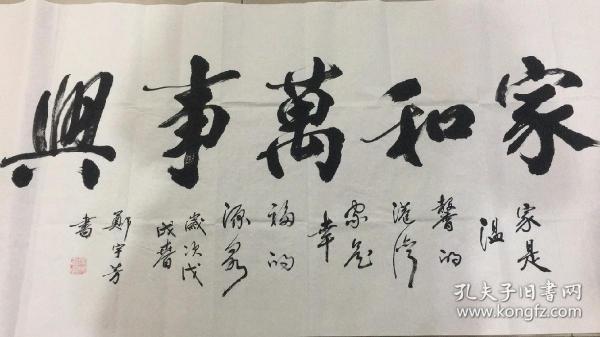 家和萬事興
家是
溫
馨的
港灣
家是
幸
福的
源泉
歲次戊
戌春
鄭宇芳
書
孔夫子旧书网
kongfz.com